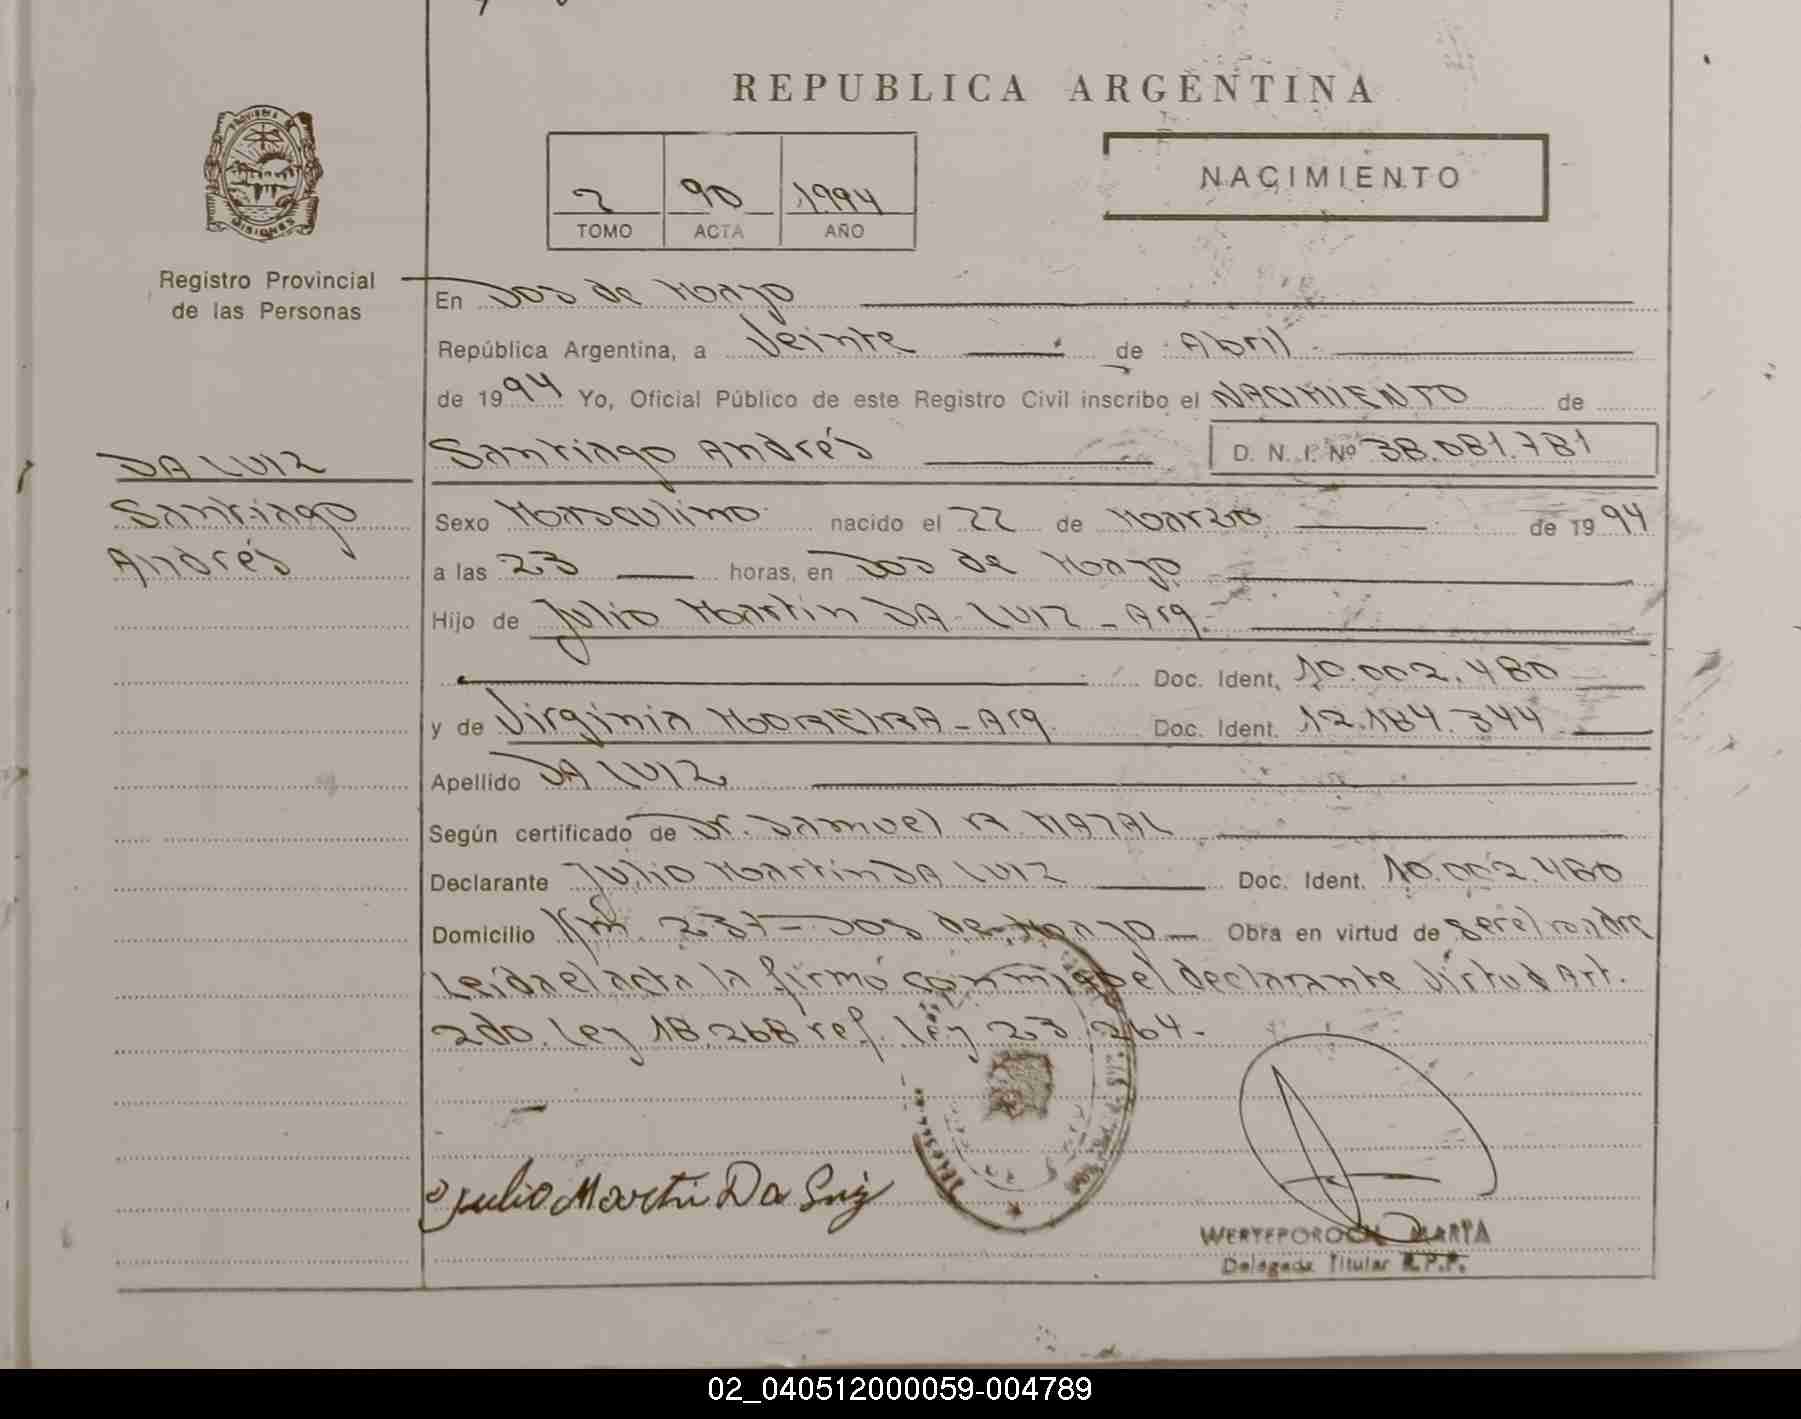 REPUBLICA ARGENTINA
PROVINCIA DE MISIONES
2 90 1994
TOMO ACTA AÑO
NACIMIENTO
Registro Provincial
de las Personas
En Dos de Mayo
República Argentina, a Veinte de Abril
de 1994 Yo, Oficial Público de este Registro Civil inscribo el NACIMIENTO de
Santiago Andrés D. N. I. Nº 38.081.781
DA LUIZ
Santiago
Andrés
Sexo Masculino nacido el 22 de Marzo de 1994
a las 23 horas, en Dos de Mayo
Hijo de Julio Martín DA LUIZ - Arg.
Doc. Ident. 10.002.480
y de Virginia MOREIRA - Arg. Doc. Ident. 12.184.344
Apellido DA LUIZ
Según certificado de Dr. Samuel R. NATAL
Declarante Julio Martín DA LUIZ Doc. Ident. 10.002.480
Domicilio Km. 237 - Dos de Mayo Obra en virtud de ser el padre
Leída el acta la firmó conmigo el declarante Virtud Art.
2do. Ley 18.268 ref. ley 23.264-
Julio Martin Da Luiz
WERTEPOROCH MARTA
Delegada Titular R.P.P.
02_040512000059-004789